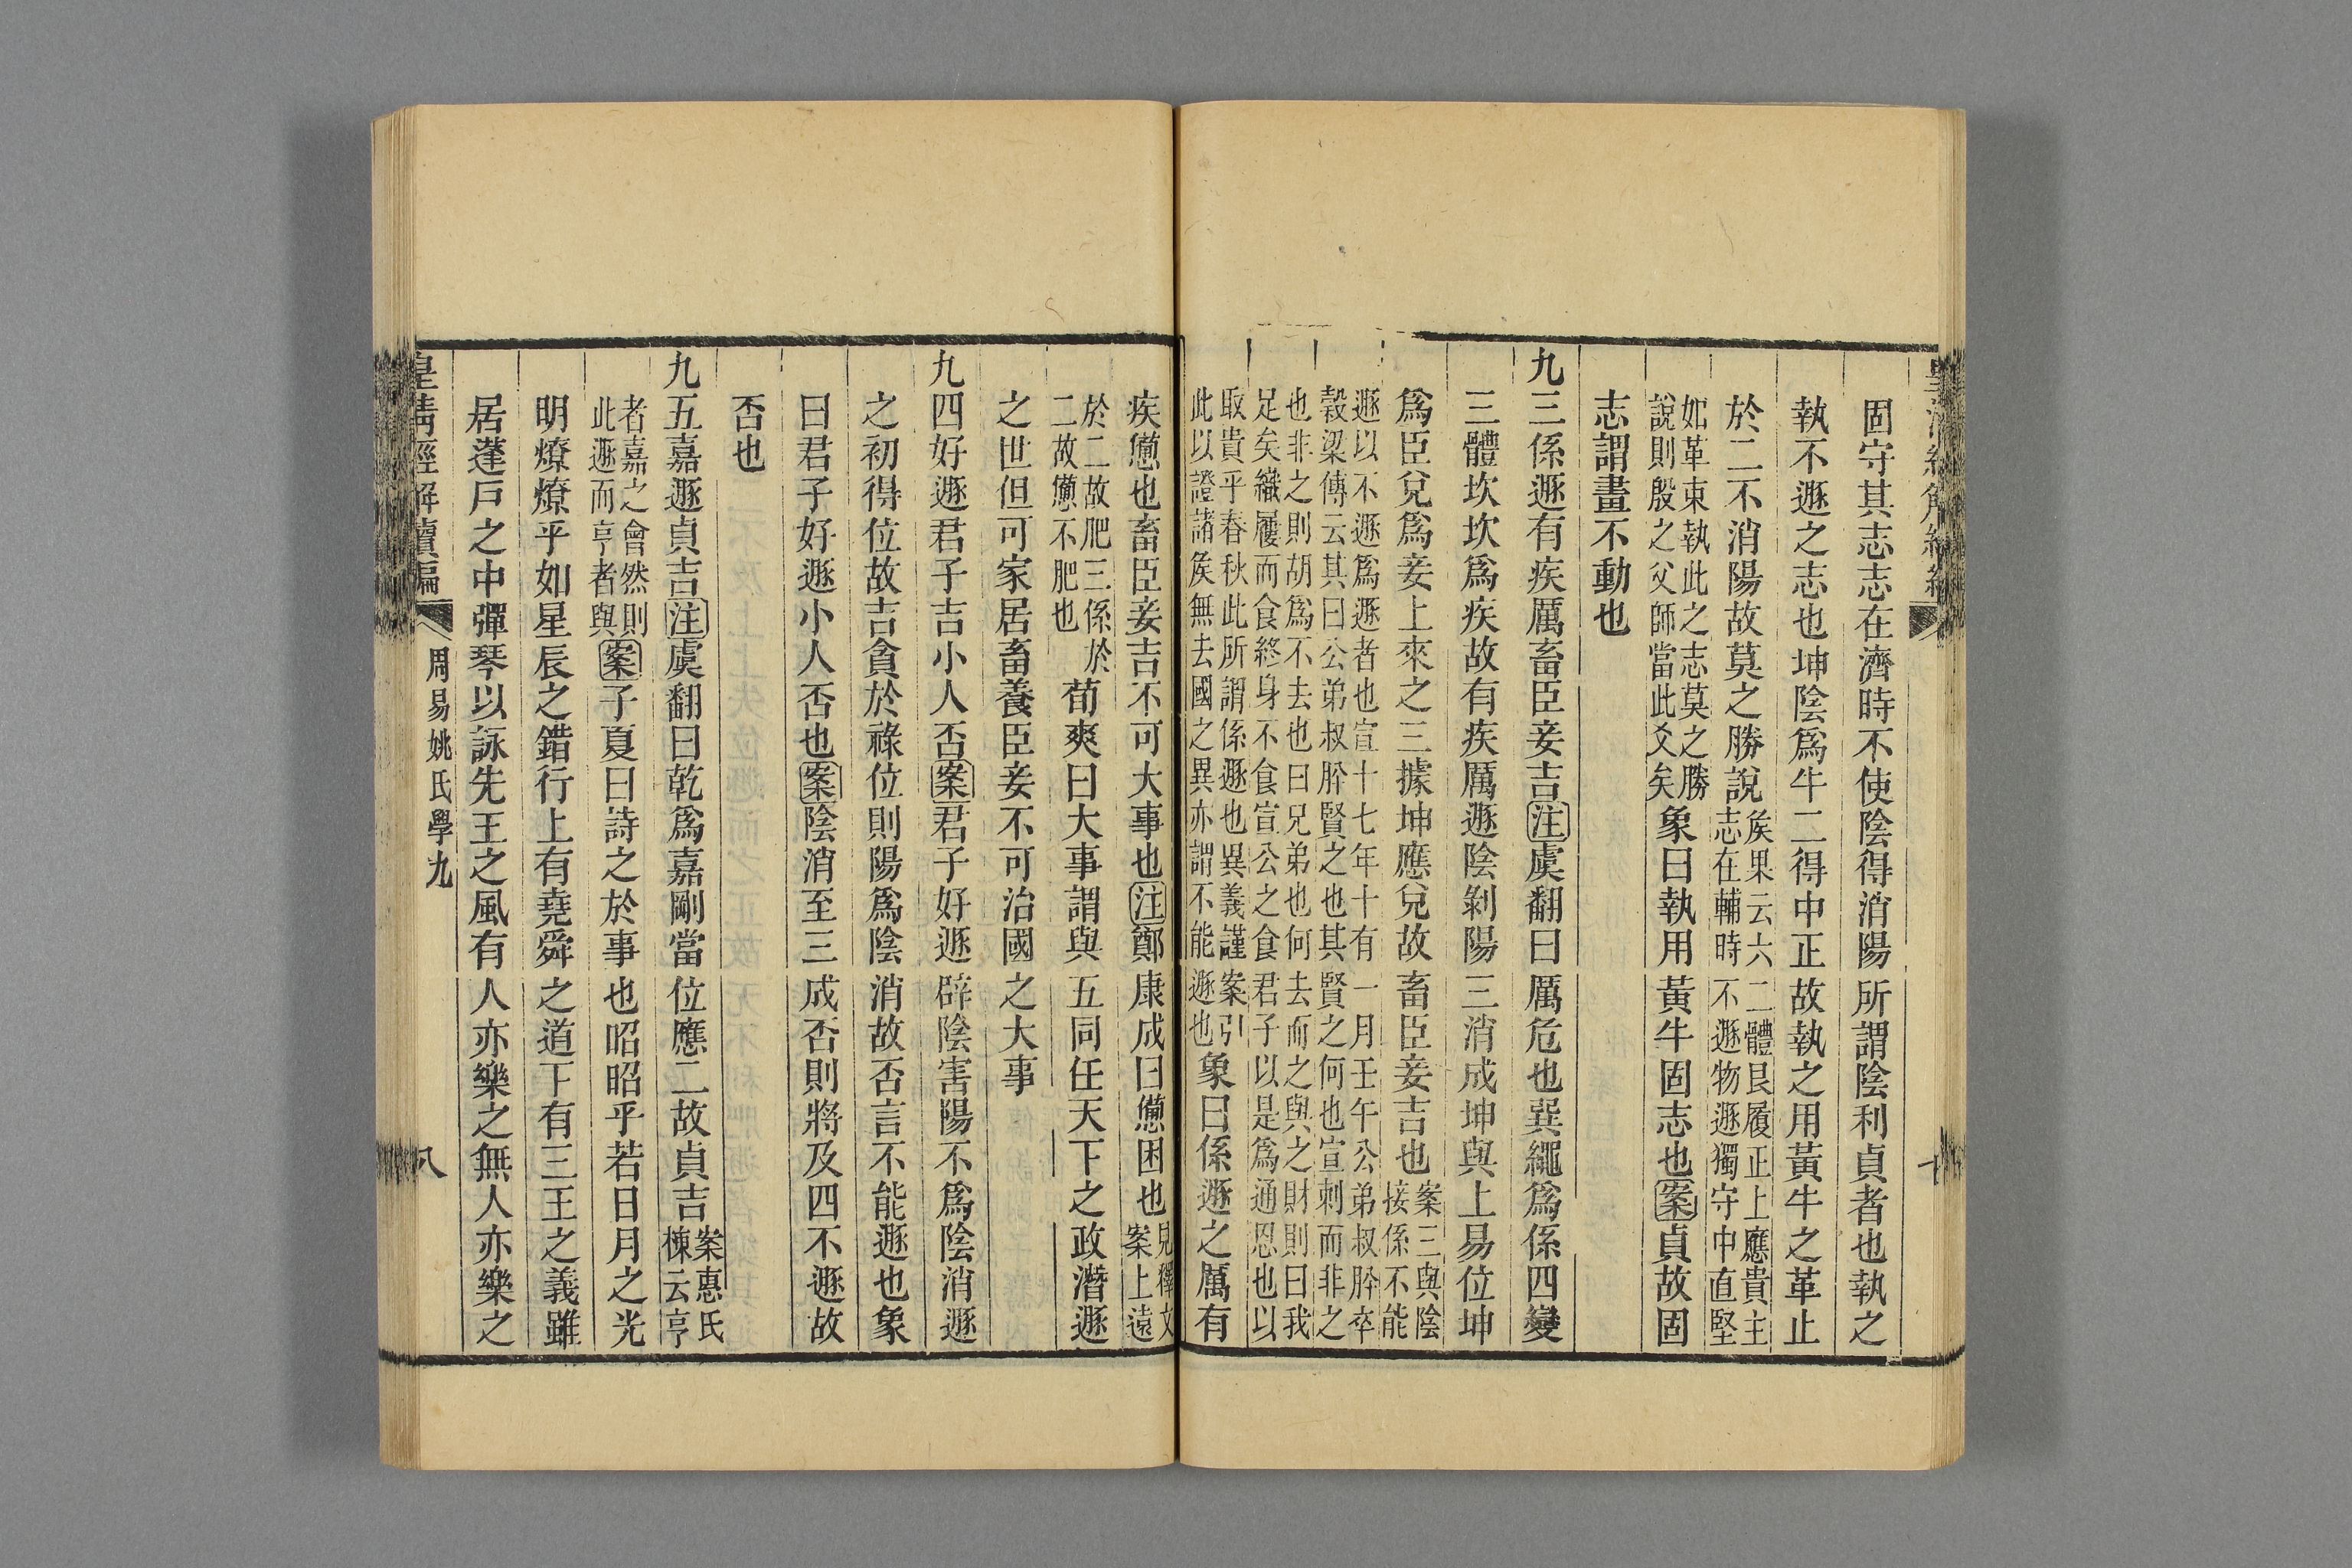 固守其志志在濟時不使陰得消陽所謂陰利貞者也執之
執不遯之志也坤陰爲牛二得中正故執之用黃牛之革止
於二不消陽故莫之勝說
矦果云六二體艮履正上應貴主
志在輔時不遯物遯獨守中直堅
如革束執此之志莫之勝
說則殷之父師當此爻矣
象曰執用黃牛固志也案貞故固
志謂畫不動也
九三係遯有疾厲畜臣妾吉注虞翻曰厲危也巽繩爲係四變
三體坎坎爲疾故有疾厲遯陰剝陽三消成坤與上易位坤
爲臣兌爲妾上來之三據坤應兌故畜臣妾吉也
案三與陰
接係不能
遯以不遯爲遯者也宣十七年十有一月壬午公弟叔肸卒
穀梁傳云其曰公弟叔肸賢之也其賢之何也宣刺而非之
也非之則胡爲不去也曰兄弟也何去而之與之財則曰我
足矣織屨而食終身不食宣公之食君子以是爲通恩也以
取貴乎春秋此所謂係遯也異義謹案引
此以證諸矦無去國之異亦謂不能遯也
象曰係遯之厲有
疾憊也畜臣妾吉不可大事也注鄭康成曰憊困也
見釋文
案上遠
於二故肥三係於
二故憊不肥也
荀爽曰大事謂與五同任天下之政潛遯
之世但可家居畜養臣妾不可治國之大事
九四好遯君子吉小人否案君子好遯辟陰害陽不爲陰消遯
之初得位故吉貪於祿位則陽爲陰消故否言不能遯也象
曰君子好遯小人否也案陰消至三成否則將及四不遯故
否也
九五嘉遯貞吉注虞翻曰乾爲嘉剛當位應二故貞吉
案惠氏
棟云亨
者嘉之會然則
此遯而亨者與
案子夏曰詩之於事也昭昭乎若日月之光
明燎燎乎如星辰之錯行上有堯舜之道下有三王之義雖
居蓬戶之中彈琴以詠先王之風有人亦樂之無人亦樂之
皇清經解續編
周易姚氏學九
八